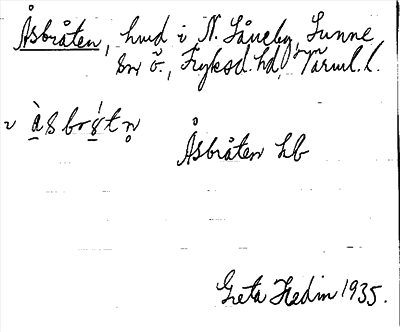 Åsbråten, hmd i N. Låneby, Sunne
sn ö., Fryksd. hd, Värml. l.
Åsbråten hb
Greta Hedin 1935.